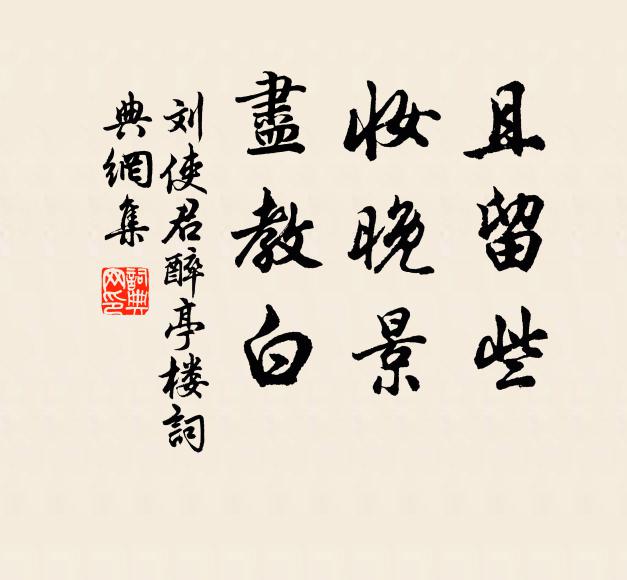 且留些
妝晚景
盡教白
刘使君醉亭楼詞
典網集
詞典
网印